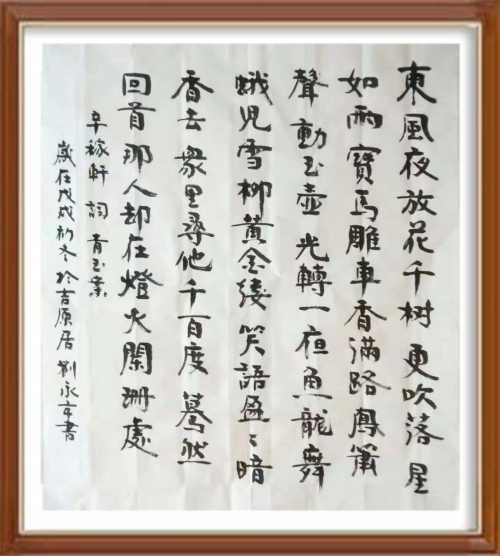 東風夜放花千树更吹落星
如雨寶馬雕車香滿路鳳簫
聲動玉壺光轉一夜魚龍舞
蛾児雪柳黄金縷笑語盈〻暗
香去衆里尋他千百度驀然
回首那人却在燈火闌珊處
辛稼軒詞青玉案
歲在戊戌初冬於吉原居劉永年書